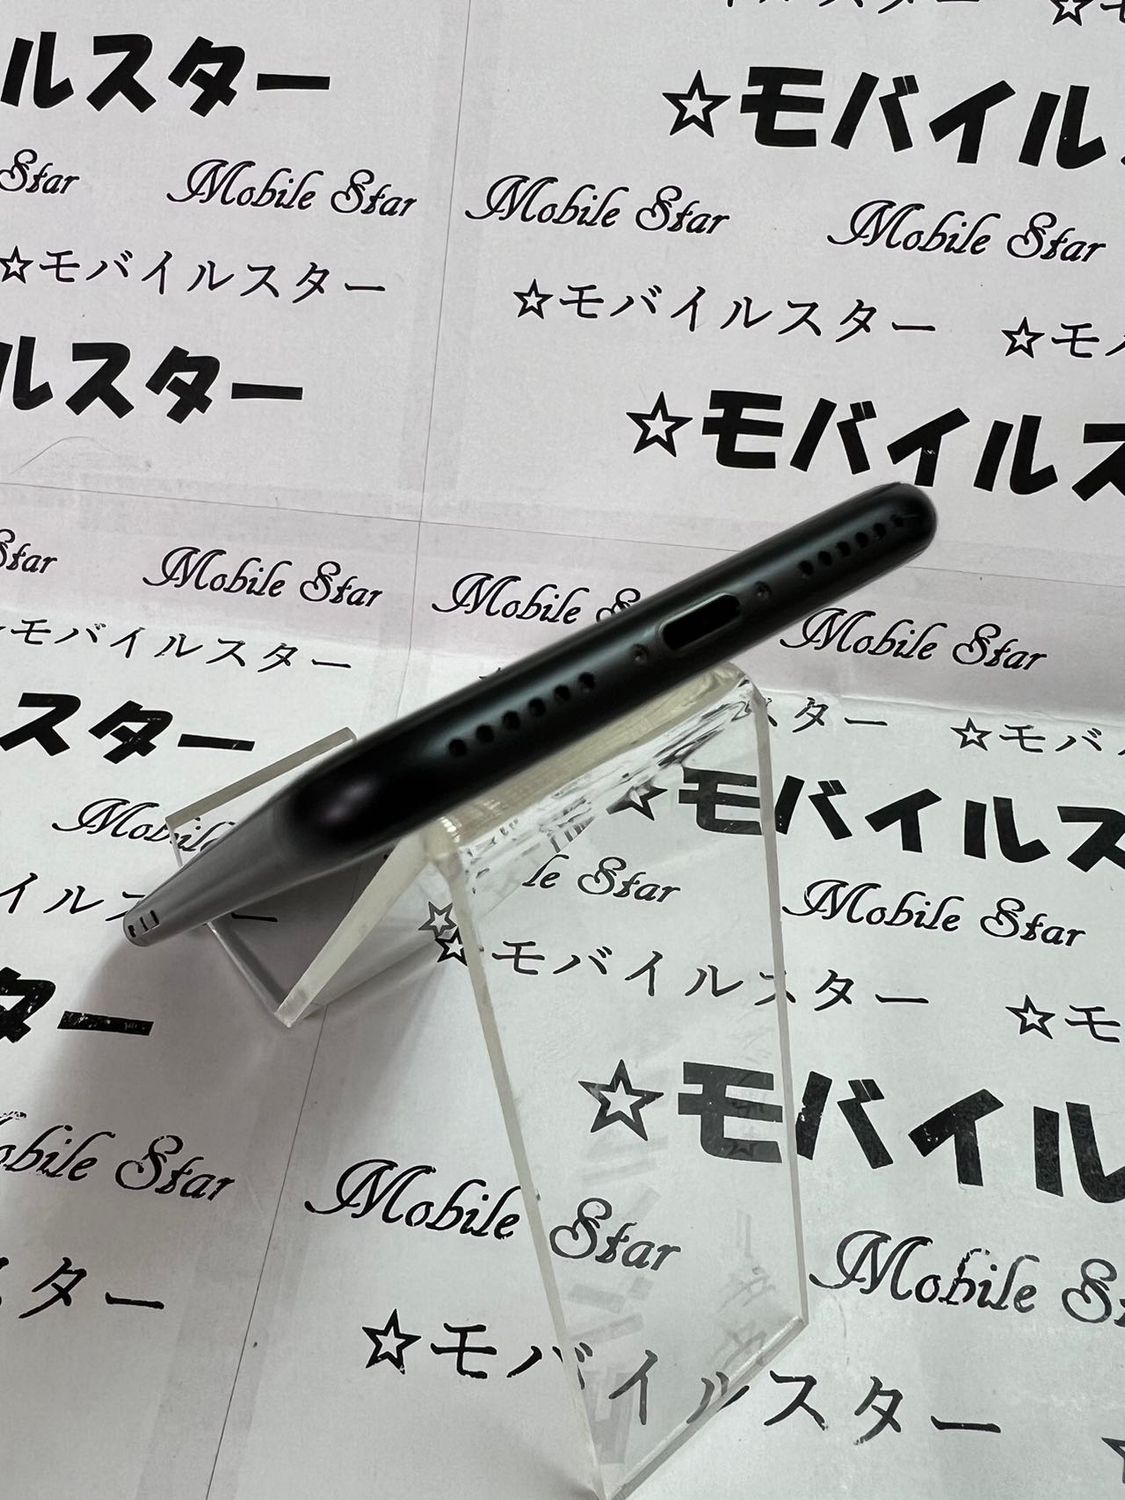 ルスター ☆モバイル
Star Mobile Star Mobile Star Mobile Star
☆モバイルスター ☆モバイルスター ☆モ
ルスター ☆モバイルス
Star Mobile Star Mobile Mobile Star
モバイルスター スター ☆モバ
スター ☆モバイルス
Mobile le Star Mobile Star
イルス ☆モバイルスター ☆モ
ター ☆モバイル
obile Star Mobile Star Mobile S
スター ☆モバイルスター